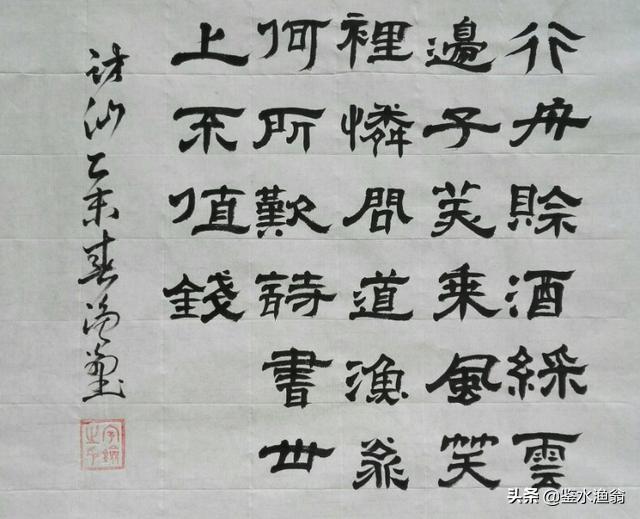 行舟賒酒綵雲
邊子美乘風笑
裡憐問道漁翁
何所歎詩書世
上不值錢
仙乙未春
头条 @鉴水渔翁